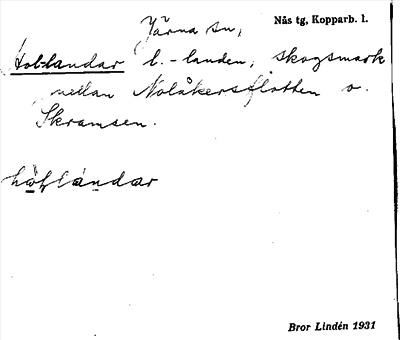 Järna sn, Nås tg, Kopparb. l.
Hoblandar l. -landen, skogsmark
mellan Nolåkersflotten o.
Skramsen.
Bror Lindén 1931